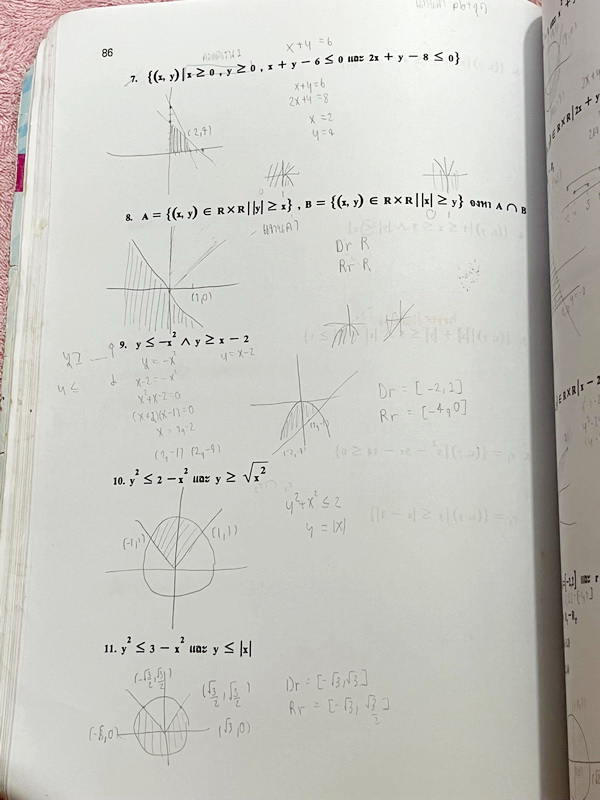 86
x+y =6
7. {(x, y) | x ≥ 0 , y ≥ 0 , x + y − 6 ≤ 0 และ 2x + y − 8 ≤ 0}
x+y=6
2x+y =8
x =2
y=4
(2,4)
8. A = {(x, y) ∈ R×R | |y| ≥ x} , B = {(x, y) ∈ R×R | |x| ≥ y} จงหา A ∩ B
0 1
Dr R
Rr R
(1,0)
9. y ≤ −x² ∧ y ≥ x − 2
y = -x²
y = x-2
x-2 = -x²
x²+x-2=0
(x+2)(x-1)=0
x = 1,-2
(1,-1) (2,-4)
(1,-1)
(-2,-4)
Dr = [-2,1]
Rr = [-4,0]
10. y² ≤ 2 − x² และ y ≥ √x²
y²+x² ≤ 2
y = |x|
(-1,1)
(1,1)
11. y² ≤ 3 − x² และ y ≤ |x|
(-√3/2,√3/2)
(√3/2,√3/2)
(-√3,0)
(√3,0)
Dr = [-√3,√3]
Rr = [-√3, √3/2]